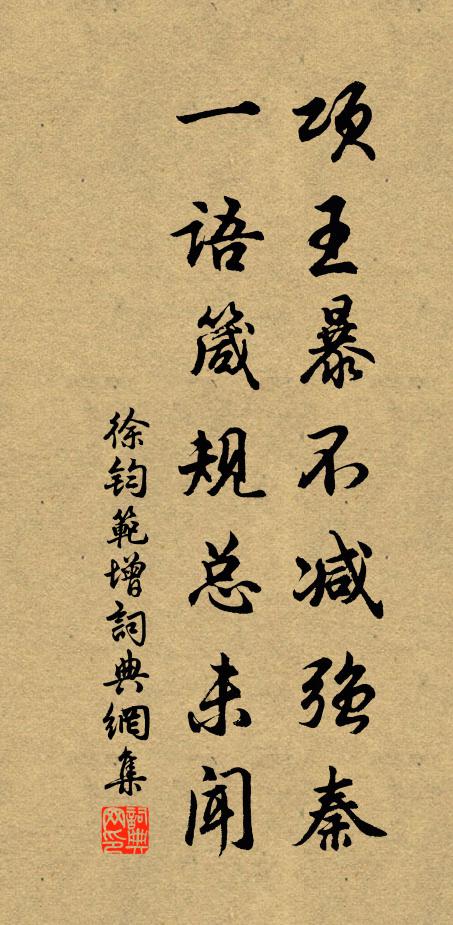 项王暴不减强秦
一语箴规总未闻
徐钧範增詞典網集
詞典网印